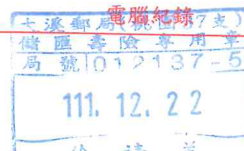 電腦紀錄
大溪郵局(桃園37支)
儲匯壽險專用章
局號012137-5
111.12.22